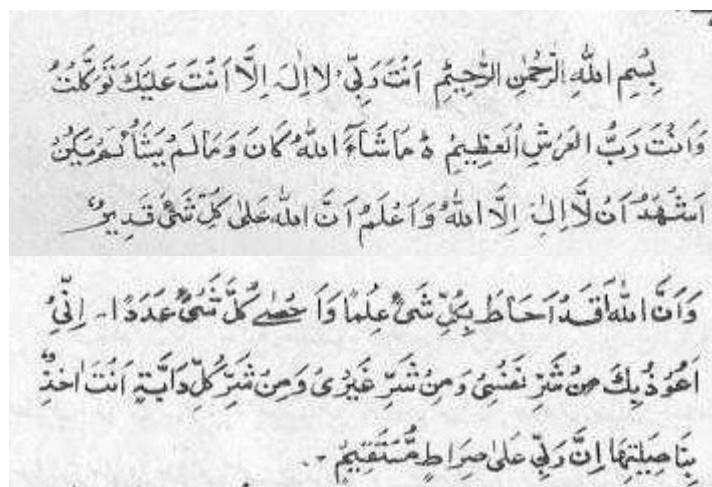 بِسْمِ اللهِ الرَّحْمٰنِ الرَّحِيْمِ اَنْتَ رَبِّيْ لَا اِلٰهَ اِلَّا اَنْتَ عَلَيْكَ تَوَكَّلْتُ
وَاَنْتَ رَبُّ الْعَرْشِ الْعَظِيْمِ ۝ مَا شَآءَ اللهُ كَانَ وَمَا لَمْ يَشَأْ لَمْ يَكُنْ
اَشْهَدُ اَنْ لَّا اِلٰهَ اِلَّا اللهُ وَاَعْلَمُ اَنَّ اللهَ عَلٰى كُلِّ شَىْءٍ قَدِيْرٌ
وَاَنَّ اللهَ قَدْ اَحَاطَ بِكُلِّ شَىْءٍ عِلْمًا وَاَحْصٰے كُلَّ شَىْءٍ عَدَدًا۔ اِنِّيْ
اَعُوْذُ بِكَ مِنْ شَرِّ نَفْسِيْ وَمِنْ شَرِّ غَيْرِىْ وَمِنْ شَرِّ كُلِّ دَابَّةٍ اَنْتَ اٰخِذٌ
بِنَاصِيَتِهَا اِنَّ رَبِّيْ عَلٰى صِرَاطٍ مُّسْتَقِيْمٍ ۔